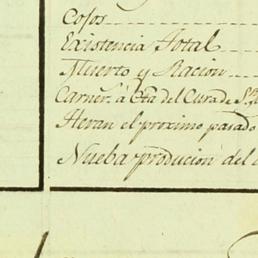 Cojos
Existencia Total
Muerto y Racion
Carner.s á Cta del Cura de S.n
Heran el proximo pasado
Nueba producion del